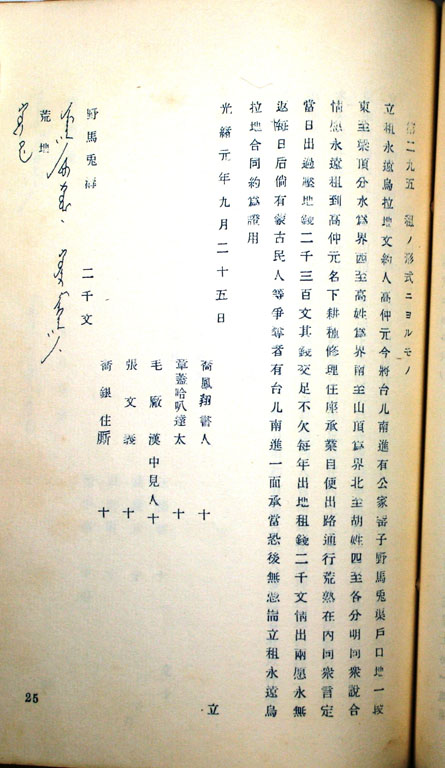 第二九五 租ノ形式ニヨルモノ
立租永遠烏拉地文約人高仲元今將台几南進有公家壽子野馬兎渠戶口地一段
東至梁頂分水爲界西至高姓爲界南至山頂爲界北至胡姓四至各分明同衆說合
情愿永遠租到高仲元名下耕種修理住座承業自便出路通行荒熟在內同衆言定
當日出過壓地錢二千三百文其錢交足不欠每年出地租錢二千文情出兩愿永無
返悔日后倘有蒙古民人等爭奪者有台几南進一面承當恐後無憑立租永遠烏
拉地合同約爲證用
光緖元年九月二十五日
喬鳳翔書人 十
章蓋哈叭達太 十
毛廠漢中見人十
張文義 十
喬銀住 十
立
野馬兎 二千文
荒地
25